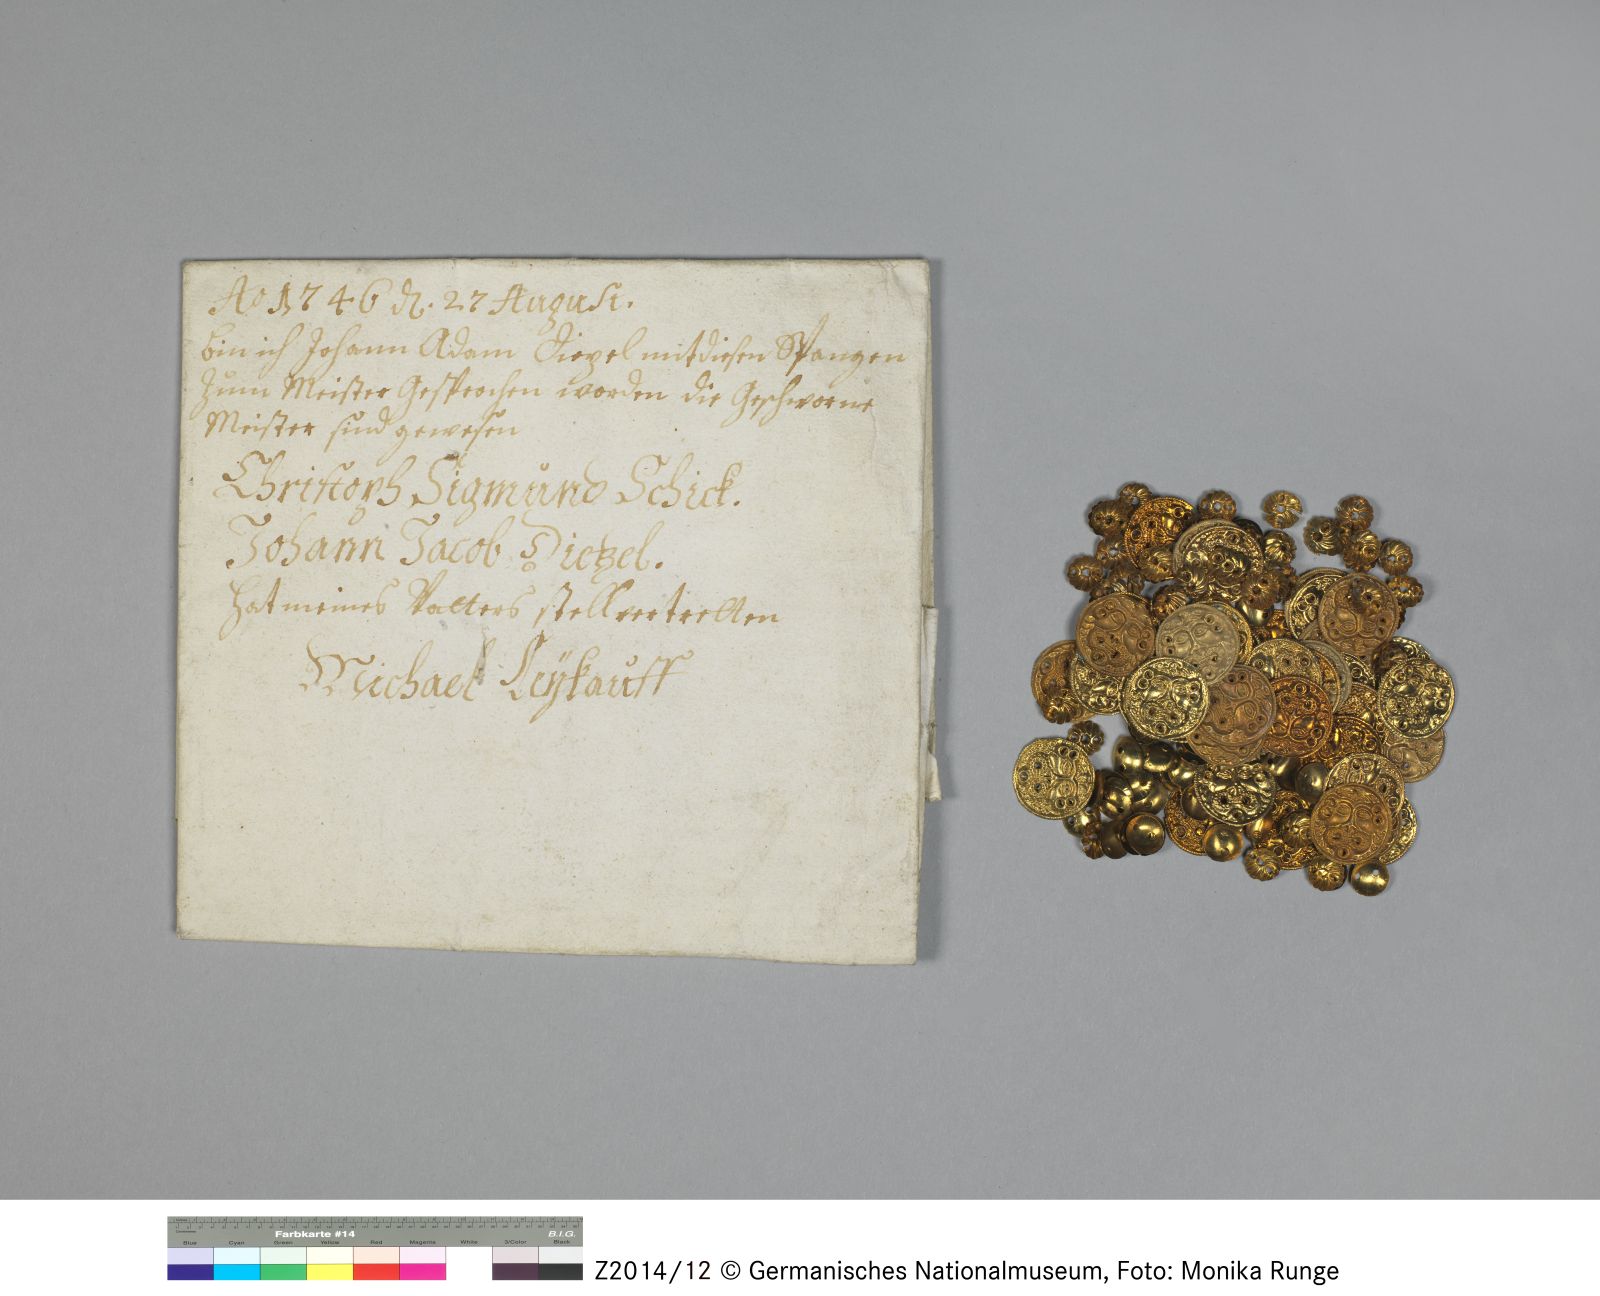 Ao 1746 d. 27 August.
bin ich Johann Adam Diezel mit diesen Spangen
zum Meister Gesprochen worden die Geschworne
Meister sind gewesen
Christoph Sigmund Schick.
Johann Jacob Dietzel.
hat meines Vatters stell vertretten
Michael Leÿkauff
Farbkarte #14
B.I.G.
Blue Cyan Green Yellow Red Magenta White 3/Color Black
Z2014/12 © Germanisches Nationalmuseum, Foto: Monika Runge